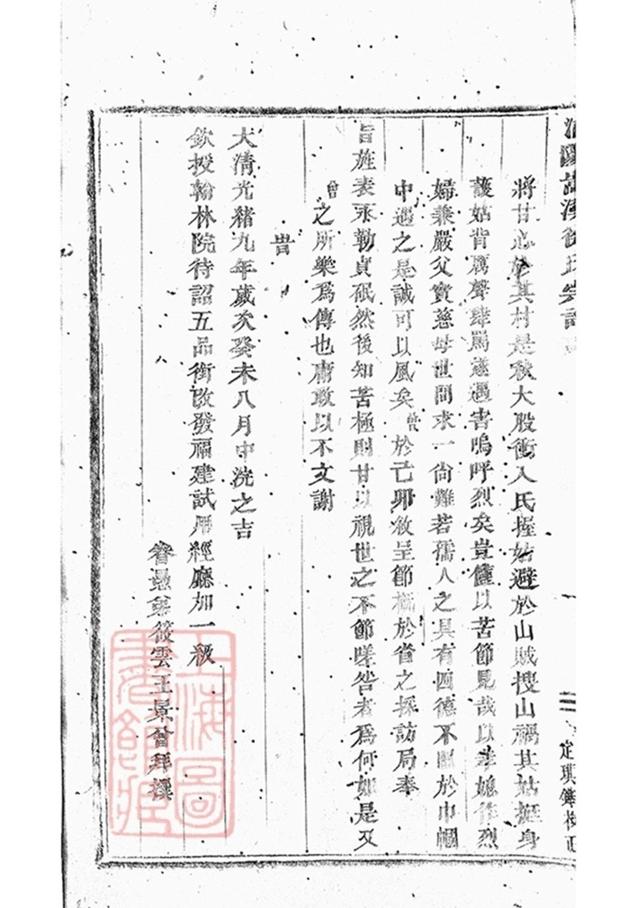 將甘心於其村是秋大股衝入氏握姑避於山賊搜山禍其姑挺身
護姑背厲聲肆罵遂遇害嗚呼烈矣豈僅以苦節見哉以孝媳作烈
婦兼嚴父實慈母世間求一尚難若孺人之具有四德不圖於巾幗
中遇之是誠可以風矣曾於己卯敘呈節概於省之採訪局奉
旨旌表永勒貞珉然後知苦極則甘以視世之不節嗟咎者為何如是又
曾之所樂爲傳也庸敢以不文謝
旹
大清光緒九年歲次癸未八月中浣之吉
欽授翰林院待詔五品銜改發福建試用經廳加一級
眷愚弟筱雲王景曾拜撰
上海圖書館藏